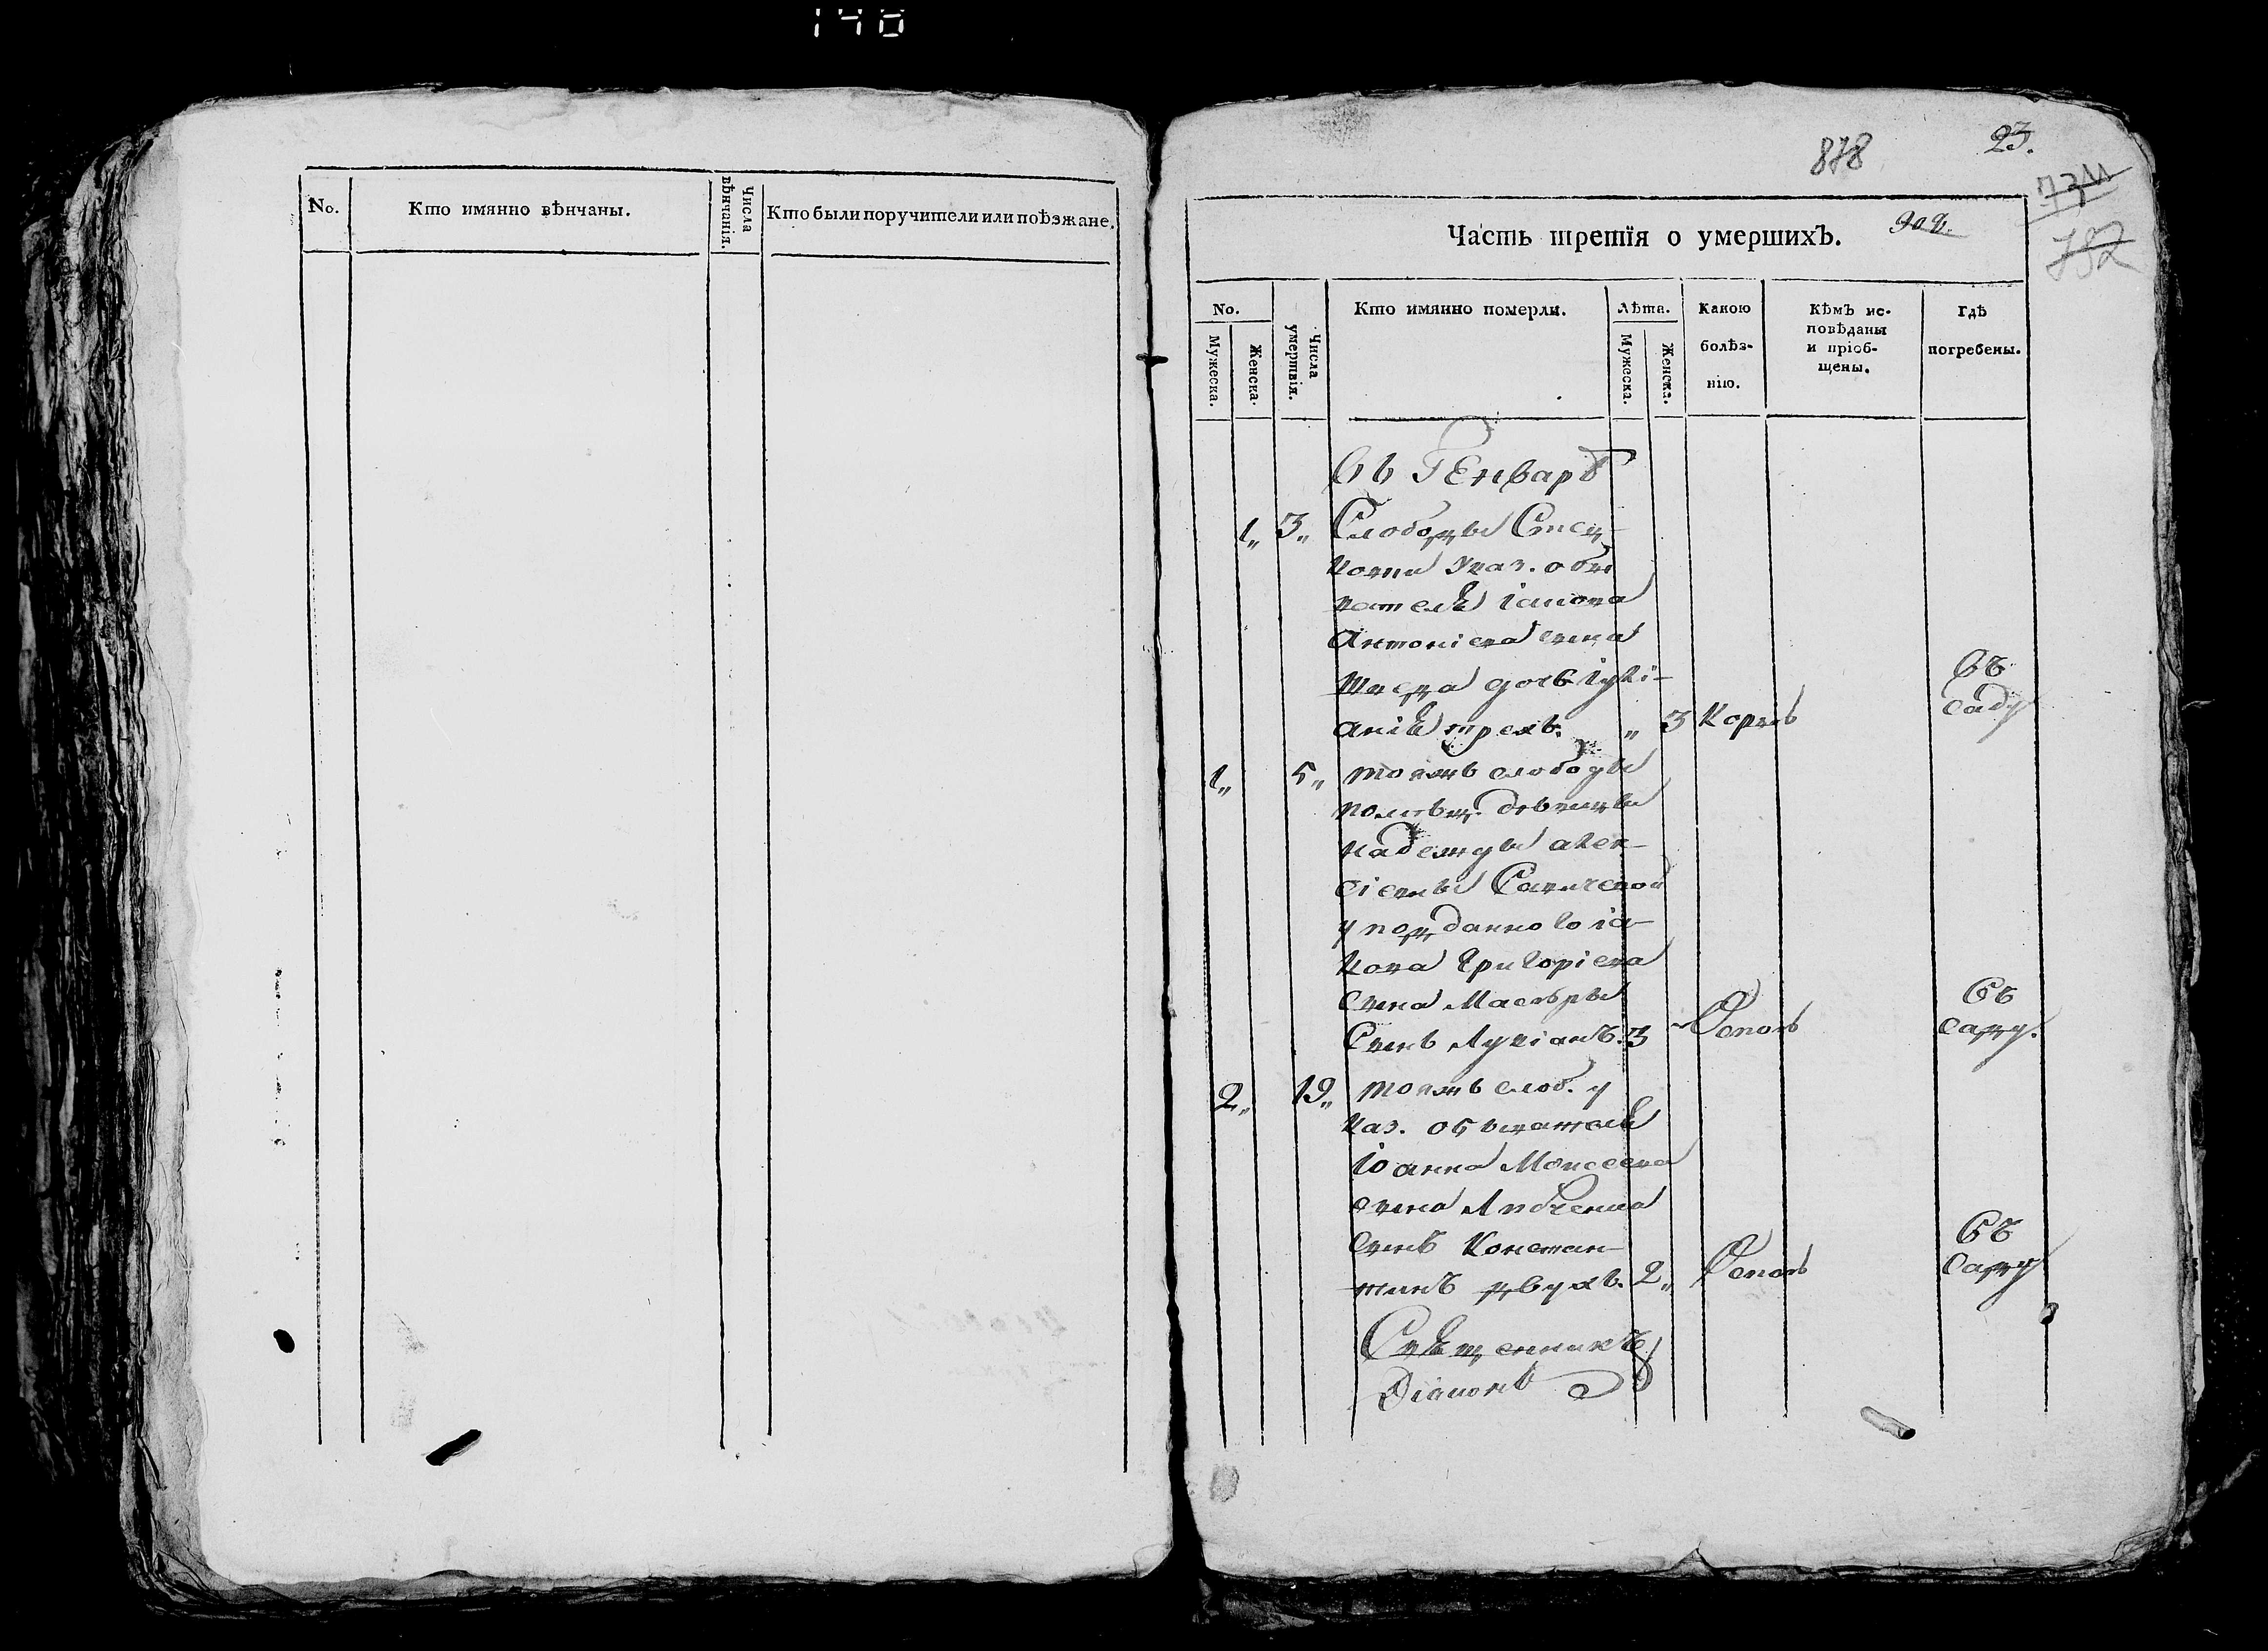 140
No.
Кто имянно вѣнчаны.
Числа вѣнчанія.
Кто были поручители или поѣзжане.
878
23.
734
782
Часть третія о умершихъ.
No.
Мужеска.
Женска.
Числа умертвія.
Кто имянно померли.
Лѣта.
Мужеска.
Женска.
Какою болѣз-нію.
Кѣмъ ис-
повѣданы
и пріоб-
щены.
Гдѣ
погребены.
Въ Генварѣ
1,, 3,, Слободы Стец-
ковки Указ. обы
вателя іакова
Антоніева сына
дочь іулі-
анія трехъ. ,, 3 Корью
въ
саду
1,, 5,, тояжъ слободы
помѣщ. дѣвицы
надежды алек-
сіевны Савичевой
у подданного іа-
кова Григоріева
сына
Сынъ Лукіанъ. 3 Оспою
Въ
саду.
2,, 19,, тояжъ слоб. у
каз. обывателя
іоанна Моисеева
сына
сынъ Констан-
тинъ двухъ. 2,, Оспою
Въ
Саду
Священникъ